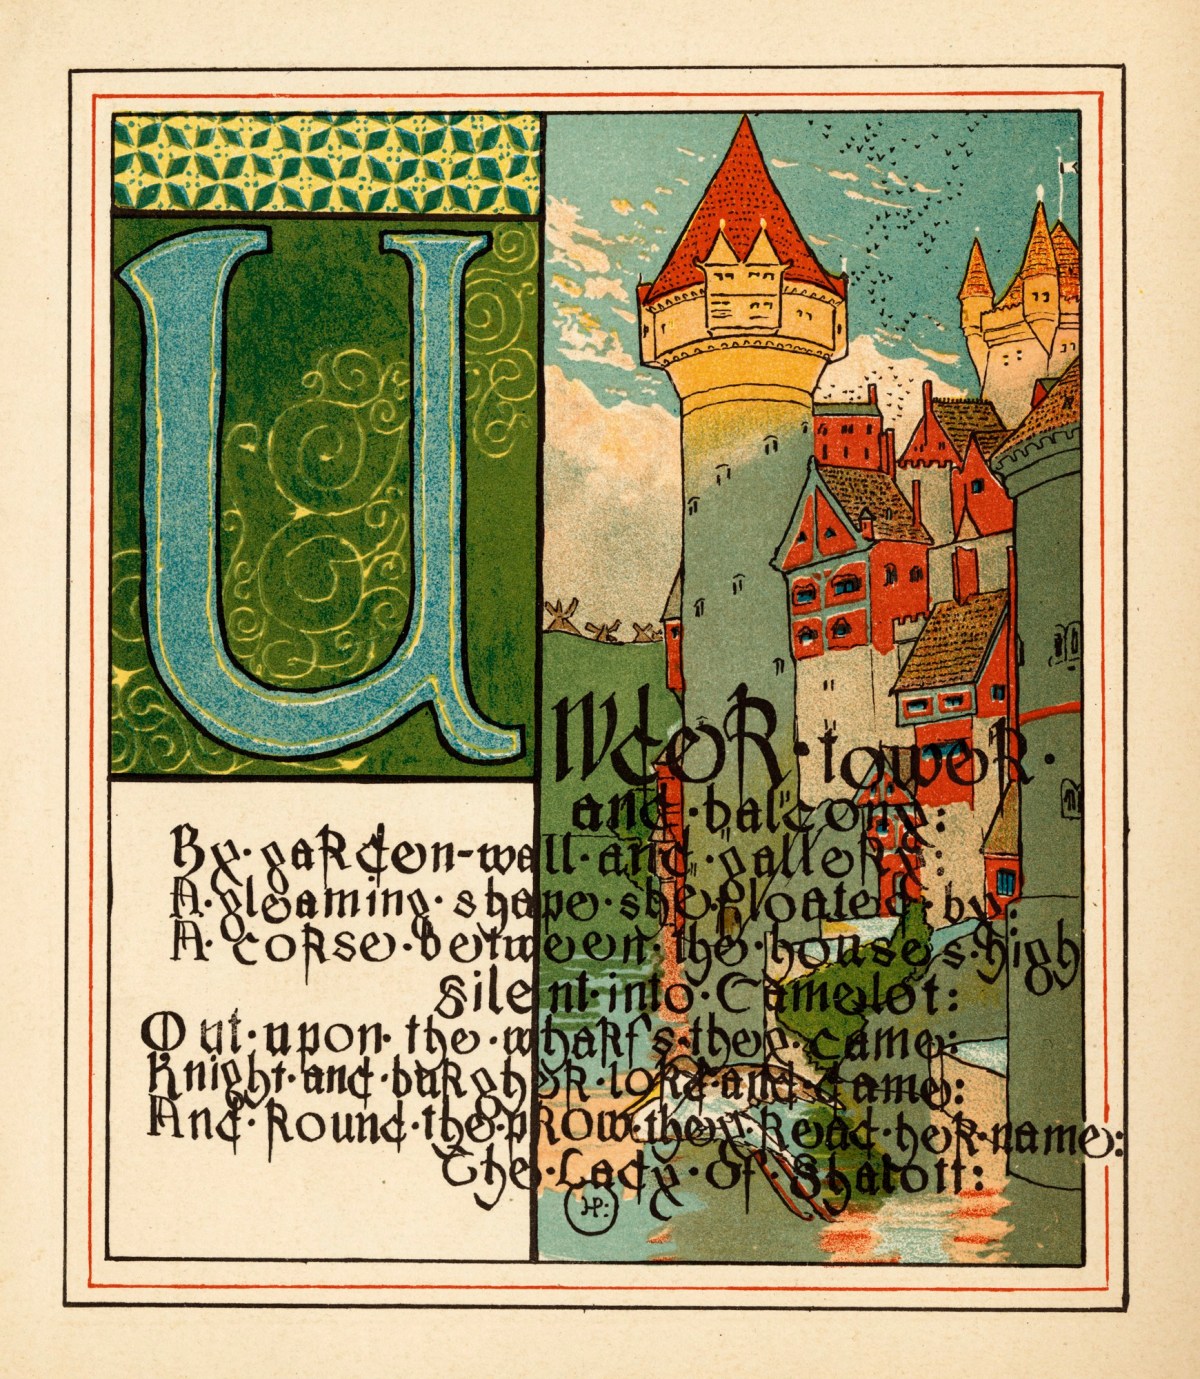 Under·tower·
and·balcony:
By·garden-wall·and·gallery:
A·gleaming·shape·she·floated·by:
A·corse·between·the·houses·high
silent·into·Camelot:
Out·upon·the·wharfs·they·came:
Knight·and·burgher·lord·and·dame:
And·round·the·prow·they·read·her·name:
The·Lady·of·Shalott:
HP: